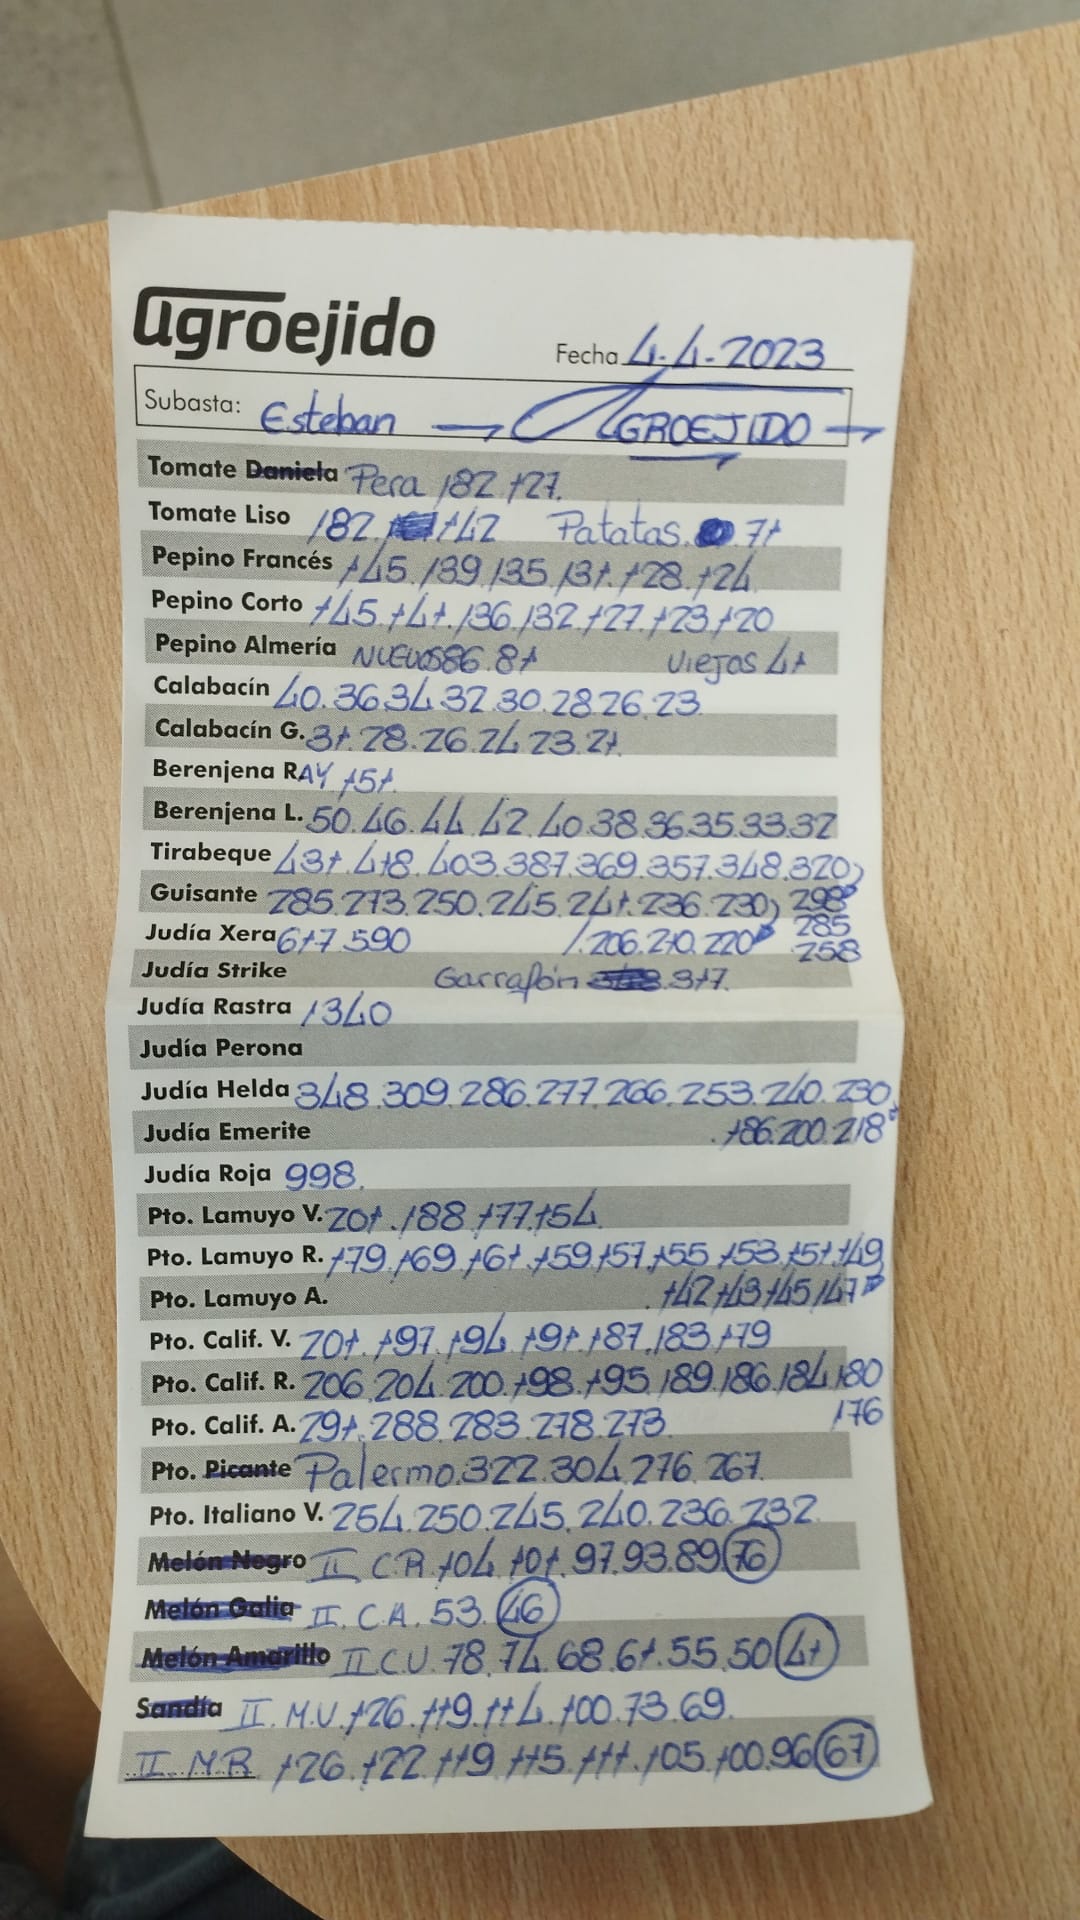 agroejido
Fecha 4.4.2023
Subasta: Esteban → AGROEJIDO →
Tomate Daniela Pera 182 127.
Tomate Liso 182 142 Patatas. 71
Pepino Francés 145.139.135.131.128.124
Pepino Corto 145.141.136.132.127.123.120
Pepino Almería NUEVOS 86.81 Viejos 41
Calabacín 40.36.34.32.30.28.26.23
Calabacín G. 31.28.26.24.23.21.
Berenjena RAY 151.
Berenjena L. 50.46.44.42.40.38.36.35.33.32
Tirabeque 431.418.403.387.369.357.348.320
Guisante 285.273.250.245.241.236.230 298
285
Judía Xera 617.590 206.210.220 258
Judía Strike Garrafón 317.
Judía Rastra 1340
Judía Perona
Judía Helda 348.309.286.277.266.253.240.230
Judía Emerite .186.200.218
Judía Roja 998.
Pto. Lamuyo V. 201.188.177.154
Pto. Lamuyo R. 179.169.161.159.157.155.153.151.149
Pto. Lamuyo A. .142.143.145.147
Pto. Calif. V. 201.197.194.191.187.183.179
Pto. Calif. R. 206.204.200.198.195.189.186.184.180
176
Pto. Calif. A. 291.288.283.278.273
Pto. Picante Palermo.322.304.276.267.
Pto. Italiano V. 254.250.245.240.236.232.
Melón Negro II C.R. 104.101.97.93.89 76
Melón Galia II. C.A. 53. 46
Melón Amarillo II C.U. 78.74.68.61.55.50 41
Sandía II. M.V. 126.119.114.100.73.69.
II. M.R 126.122.119.115.111.105.100.96 67